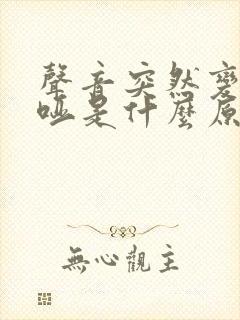 聲音突然變
啞是什麼原
無心觀主